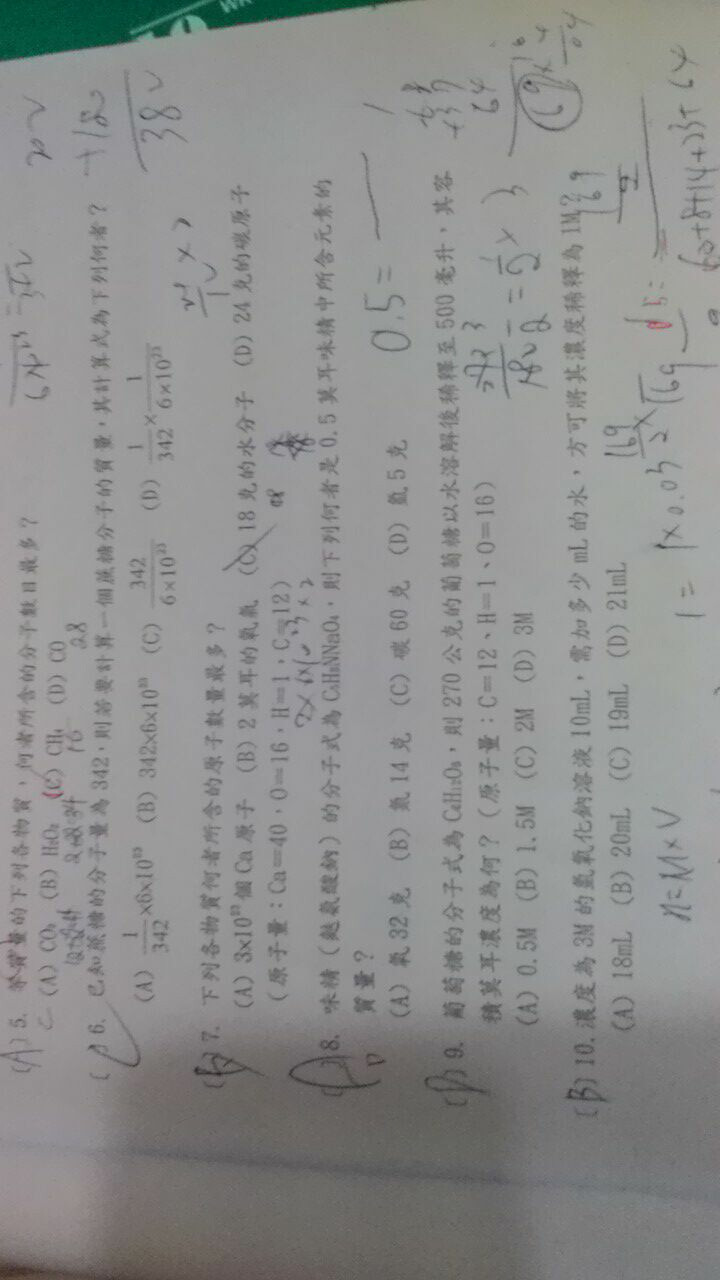 (A) 5. 等質量的下列各物質，何者所含的分子數目最多？
(A) CO₂ (B) H₂O₂ (C) CH₄ (D) CO
( ) 6. 已知蔗糖的分子量為 342，則若要計算一個蔗糖分子的質量，其計算式為下列何者？
(A) 1/342 ×6×10²³ (B) 342×6×10²³ (C) 342/6×10²³ (D) 1/342 × 1/6×10²³
(B) 7. 下列各物質何者所含的原子數量最多？
(A) 3×10²³個 Ca 原子 (B) 2 莫耳的氧氣 (C) 18 克的水分子 (D) 24 克的碳原子
(原子量：Ca=40，O=16，H=1，C=12)
( ) 8. 味精（麩氨酸鈉）的分子式為 C₅H₈NNaO₄，則下列何者是 0.5 莫耳味精中所含元素的
質量？
(A) 氧 32 克 (B) 氮 14 克 (C) 碳 60 克 (D) 氫 5 克
D
0.5 =
( ) 9. 葡萄糖的分子式為 C₆H₁₂O₆，則 270 公克的葡萄糖以水溶解後稀釋至 500 毫升，其容
積莫耳濃度為何？（原子量：C=12、H=1、O=16）
(A) 0.5M (B) 1.5M (C) 2M (D) 3M
(B) 10. 濃度為 3M 的氫氧化鈉溶液 10mL，需加多少 mL 的水，方可將其濃度稀釋為 1M？
(A) 18mL (B) 20mL (C) 19mL (D) 21mL
n=M×V
60+8+14+23+64